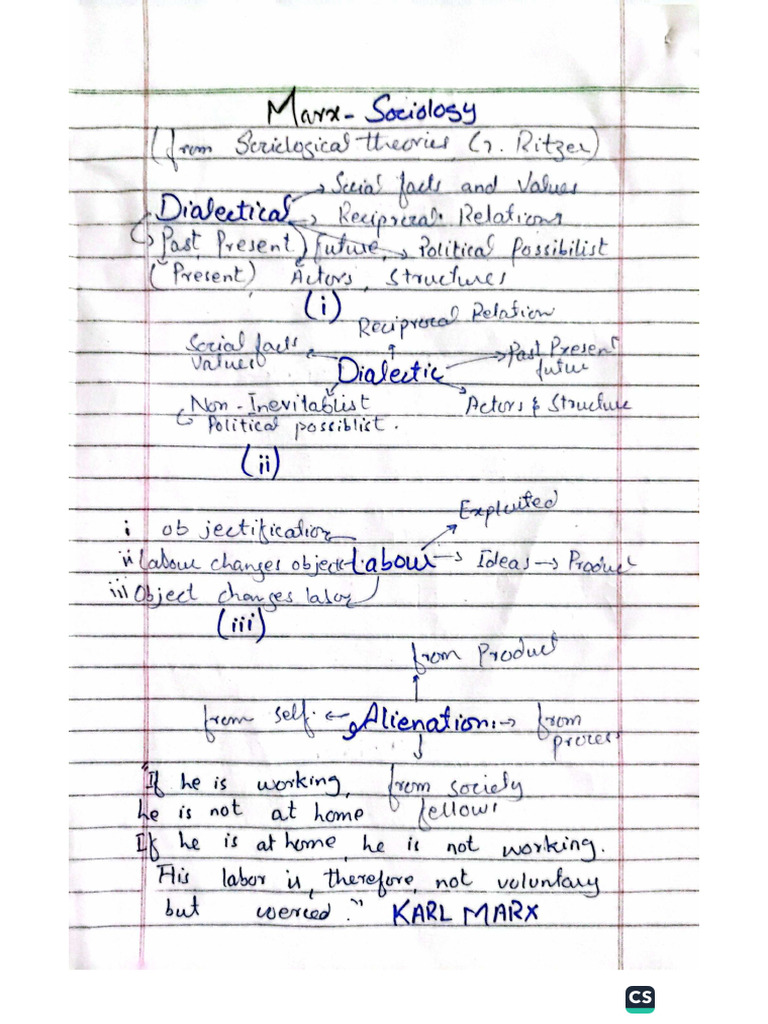 Marx - Sociology
(from Sociological theories, G. Ritzer)
Social facts and Values
Dialectical → Reciprocal Relations
Past, Present, future, Political Possibilist
(Present) Actors, Structures
(i)
Reciprocal Relation
Social facts Values
Dialectic
Past Present futur
Non-Inevitablist
Political possiblist.
Actors & Structure
(ii)
Exploited
i objectification
ii Labour changes object Labour → Ideas → Product
iii Object changes labor
(iii)
from Product
from self. ← Alienation: → from process
"If he is working, from society
he is not at home fellows
If he is at home, he is not working.
His labor is, therefore, not voluntary
but coerced." KARL MARX
CS